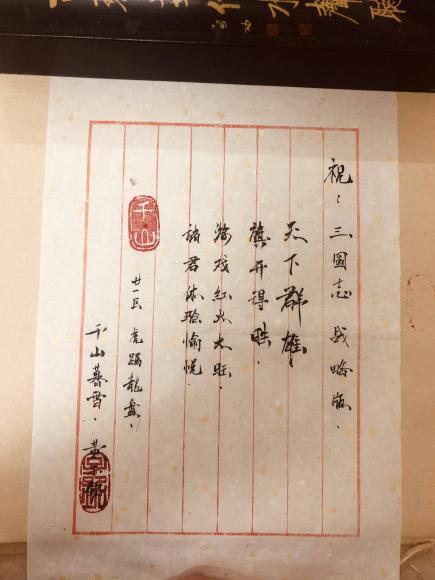 祝：三國志战略版，
天下群雄，
旗开得胜，
游戏红火大旺，
諸君体验愉悦，
廿一区 虎踞龍盘，
千山暮雪，黄
千山